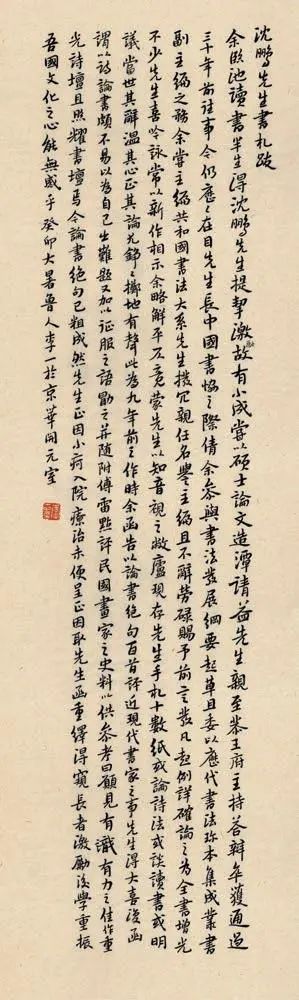 沈鹏先生書札跋
余臨池讀書半生得沈鹏先生提挈激勵故有小成嘗以碩士論文造潭請益先生親至恭王府主持答辯年獲通過
三十年前往事今仍應之在目先生長中國書協之際倩余參與書法發展綱要起草且委以歷代書法珍本集成叢書
副主编之務余嘗主编共和國書法大系先生撥冗親任名譽主编且不辭勞碌賜予前言發凡起例詳確論之為全書增光
不少先生喜吟詠常以新作相示余略解平仄竟蒙先生以知音視之敝廬現存先生手札十數纸或論詩法或談讀書或明
議當世其辭温其心正其論尤鏗之擲地有聲此為九年前之作時余函告以論書绝句百首評近現代書家之事先生得大喜復函
謂以詩論書頗不易以為自己出難題又加以征服之語勖之并随附傅雷點評民國畫家之史料以供參考曰願見有識有力之佳作重
光詩壇且照耀書壇焉今論書绝句已粗成然先生正因小疴入院療治未便呈正因取先生函重繹得窺長者激勵後學重振
吾國文化之心能無感乎癸卯大暑魯人李一於京華開元室